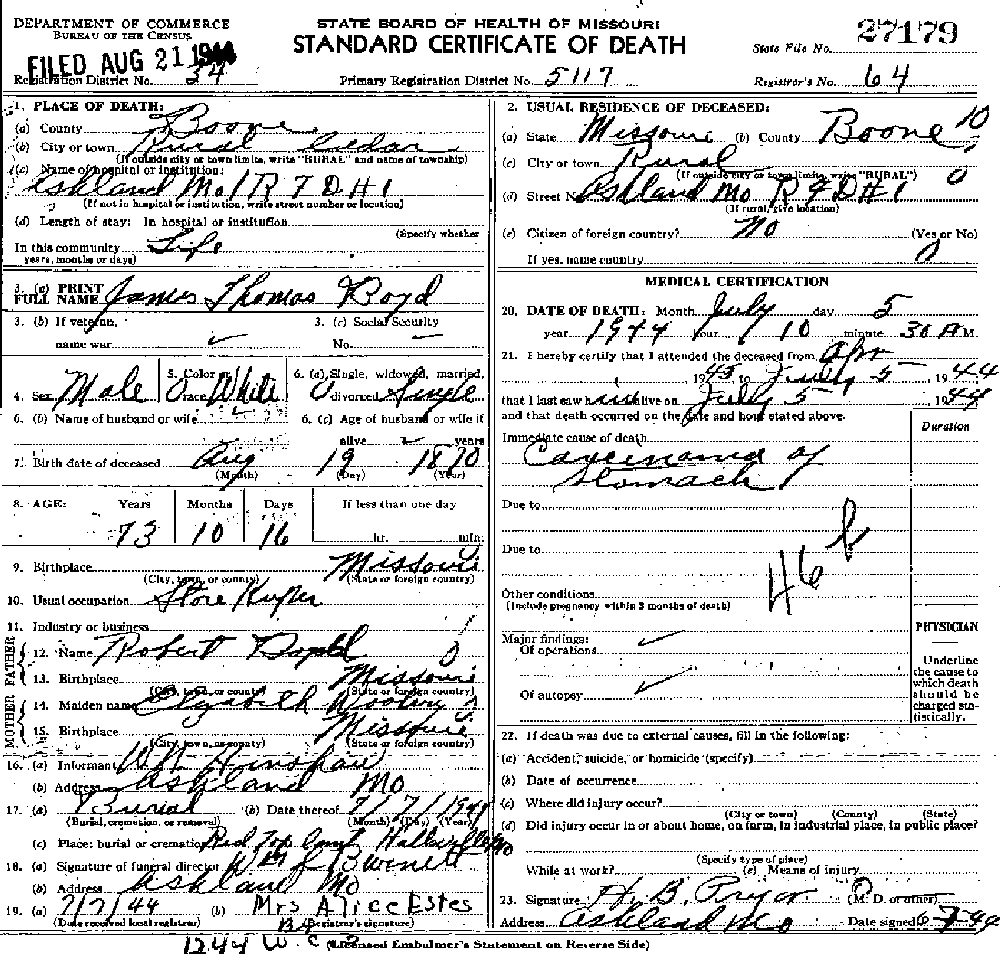 DEPARTMENT OF COMMERCE
BUREAU OF THE CENSUS
STATE BOARD OF HEALTH OF MISSOURI
STANDARD CERTIFICATE OF DEATH
State File No. 27179
FILED AUG 21 1944
Registration District No. 34
Primary Registration District No. 5117
Registrar's No. 64
1. PLACE OF DEATH:
(a) County Boone
(b) City or town Rural Cedar
(If outside city or town limits, write "RURAL" and name of township)
(c) Name of hospital or institution:
Ashland Mo R F D #1
(If not in hospital or institution, write street number or location)
(d) Length of stay: In hospital or institution
(Specify whether
In this community Life
years, months or days)
3. (a) PRINT FULL NAME James Thomas Boyd
3. (b) If veteran, name war
3. (c) Social Security No.
4. Sex Male
5. Color or race White
6. (a) Single, widowed, married, divorced Single
6. (b) Name of husband or wife
6. (c) Age of husband or wife if alive years
7. Birth date of deceased Aug 19 1870
(Month) (Day) (Year)
8. AGE: Years Months Days If less than one day
73 10 16 hr. min.
9. Birthplace Missouri
(City, town, or county) (State or foreign country)
10. Usual occupation Store Keeper
11. Industry or business
FATHER
12. Name Robert
13. Birthplace Missouri
(City, town, or county) (State or foreign country)
MOTHER
14. Maiden name Elizabeth
15. Birthplace Missouri
(City, town, or county) (State or foreign country)
16. (a) Informant W N Hinshaw
(b) Address Ashland Mo
17. (a) Burial (b) Date thereof 7/7/1944
(Burial, cremation, or removal) (Month) (Day) (Year)
(c) Place: burial or cremation Red Top Cemt Mo
18. (a) Signature of funeral director
(b) Address Ashland Mo
19. (a) 7/7/44 (b) Mrs Alice Estes
(Date received local registrar) (Registrar's signature)
1244 W. C.
(Licensed Embalmer's Statement on Reverse Side)
2. USUAL RESIDENCE OF DECEASED:
(a) State Missouri (b) County Boone 10
(c) City or town Rural
(If outside city or town limits, write "RURAL") 0
(d) Street No. Ashland Mo R F D #1
(If rural, give location)
(e) Citizen of foreign country? No (Yes or No)
If yes, name country 0
MEDICAL CERTIFICATION
20. DATE OF DEATH: Month July day 5
year 1944 hour 10 minute 30 A M.
21. I hereby certify that I attended the deceased from Apr
1943 to July 5 1944
that I last saw him alive on July 5 1944
and that death occurred on the date and hour stated above.
Duration
Immediate cause of death
Carcinoma of
Stomach
Due to
Due to
46 b
Other conditions
(Include pregnancy within 3 months of death)
PHYSICIAN
Major findings:
Of operations
Of autopsy
Underline the cause to which death should be charged statistically.
22. If death was due to external causes, fill in the following:
(a) Accident, suicide, or homicide (specify)
(b) Date of occurrence
(c) Where did injury occur?
(City or town) (County) (State)
(d) Did injury occur in or about home, on farm, in industrial place, in public place?
(Specify type of place)
While at work? (e) Means of injury
23. Signature H. B. Pryor (M. D. or other)
Address Ashland Mo Date signed